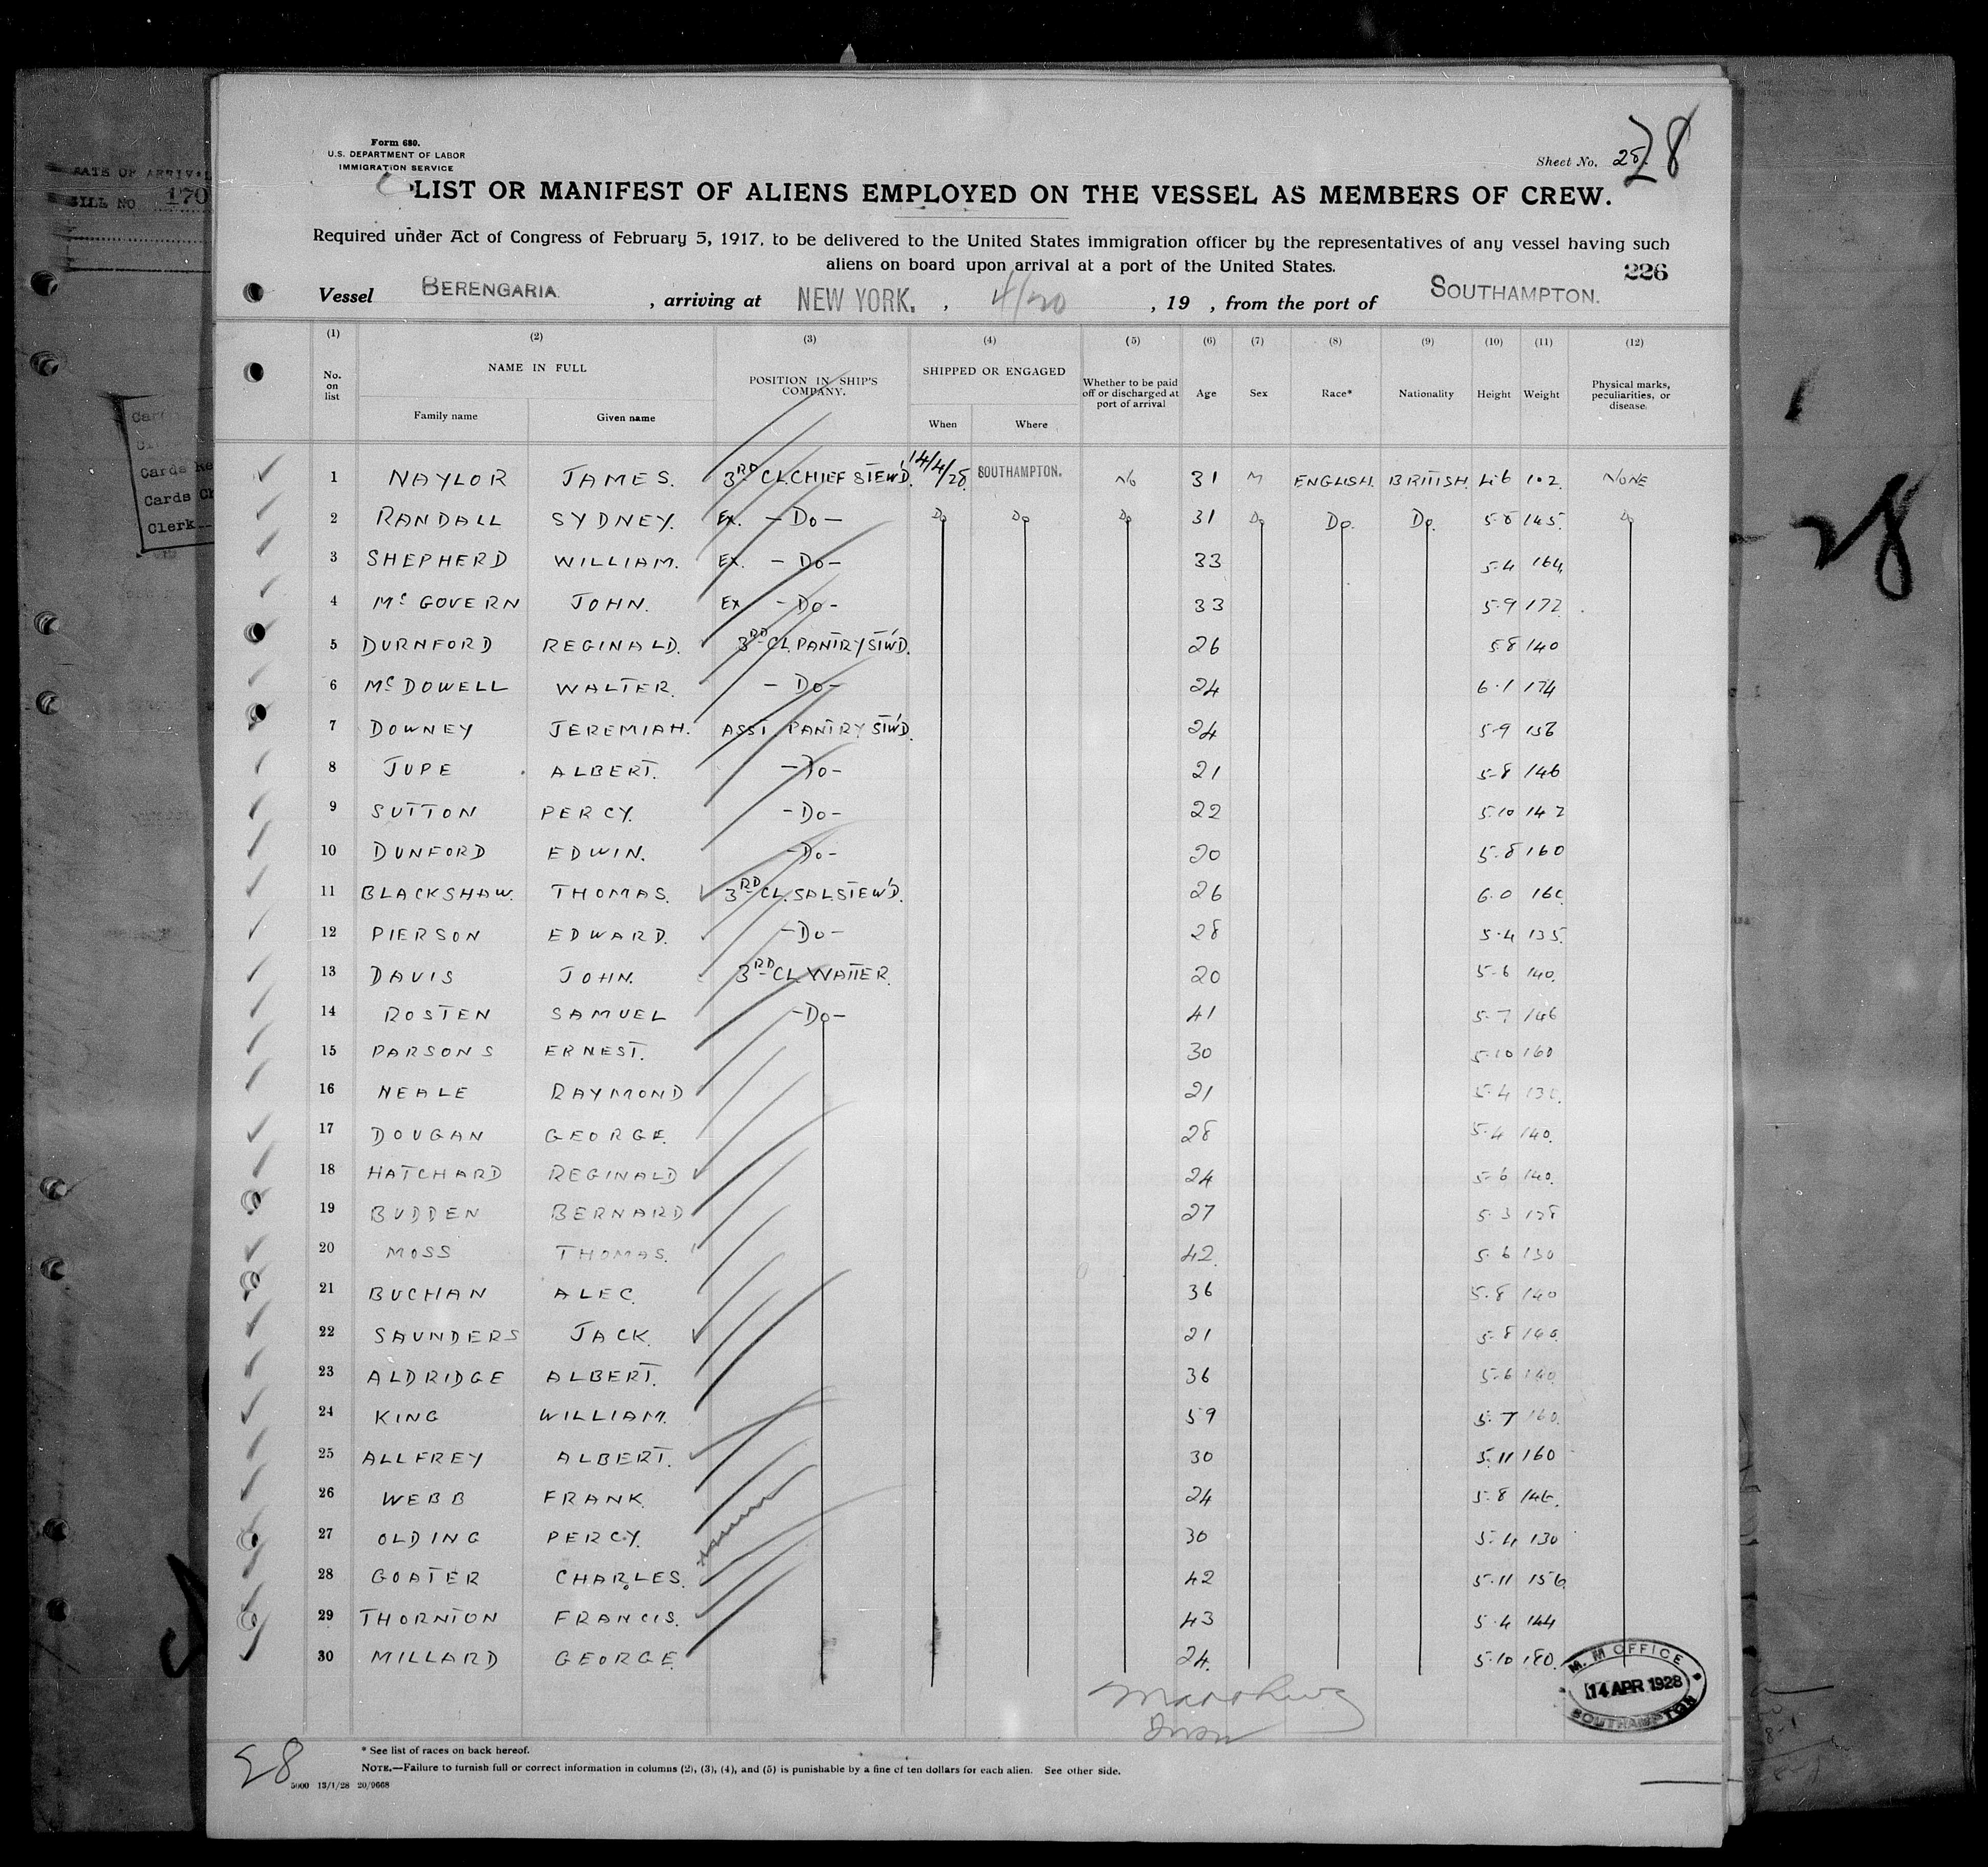 Form 680.
U.S. DEPARTMENT OF LABOR
IMMIGRATION SERVICE
Sheet No. 28
LIST OR MANIFEST OF ALIENS EMPLOYED ON THE VESSEL AS MEMBERS OF CREW.
Required under Act of Congress of February 5, 1917, to be delivered to the United States immigration officer by the representatives of any vessel having such
aliens on board upon arrival at a port of the United States.
226
Vessel BERENGARIA , arriving at NEW YORK. , 4/20 , 19 , from the port of SOUTHAMPTON.
(1) (2) (3) (4) (5) (6) (7) (8) (9) (10) (11) (12)
No. on list NAME IN FULL Family name Given name POSITION IN SHIP'S COMPANY. SHIPPED OR ENGAGED When Where Whether to be paid off or discharged at port of arrival Age Sex Race* Nationality Height Weight Physical marks, peculiarities, or disease
1 NAYLOR JAMES. 3RD CL. CHIEF STEW'D. 14/4/28. SOUTHAMPTON. No 31 M ENGLISH. BRITISH. 4.6 102 NONE
2 RANDALL SYDNEY. Ex. -Do- Do Do Do 31 Do Do. Do. 5.8 145. Do
3 SHEPHERD WILLIAM. Ex. -Do- 33 5.4 164.
4 McGOVERN JOHN. Ex -Do- 33 5.9 172
5 DURNFORD REGINALD. 3RD CL. PANTRY STW'D. 26 5.8 140
6 McDOWELL WALTER. -Do- 24 6.1 174
7 DOWNEY JEREMIAH. ASST PANTRY STW'D. 24 5.9 156
8 JUPE ALBERT. -Do- 21 5.8 146
9 SUTTON PERCY. -Do- 22 5.10 142
10 DUNFORD EDWIN. -Do- 20 5.8 160
11 BLACKSHAW. THOMAS. 3RD CL. SAL STEW'D. 26 6.0 160
12 PIERSON EDWARD. -Do- 28 5.4 135.
13 DAVIS JOHN. 3RD CL. WAITER. 20 5.6 140.
14 ROSTEN SAMUEL -Do- 41 5.7 146
15 PARSONS ERNEST. 30 5.10 160
16 NEALE RAYMOND 21 5.4
17 DOUGAN GEORGE. 28 5.4 140.
18 HATCHARD REGINALD 24 5.6 140.
19 BUDDEN BERNARD 27 5.3
20 MOSS THOMAS. 42. 5.6 130
21 BUCHAN ALEC. 36 5.8 140
22 SAUNDERS JACK. 21 5.8
23 ALDRIDGE ALBERT. 36 5.6 140
24 KING WILLIAM. 59 5.7 160.
25 ALLFREY ALBERT. 30 5.11 160
26 WEBB FRANK. 24 5.8
27 OLDING PERCY. 30 5.4 130
28 GOATER CHARLES. 42 5.11 156
29 THORNTON FRANCIS. 43 5.4 144
30 MILLARD GEORGE. 24. 5.10 180.
M. M OFFICE
14 APR 1928
SOUTHAMPTON
28
* See list of races on back hereof.
NOTE.—Failure to furnish full or correct information in columns (2), (3), (4), and (5) is punishable by a fine of ten dollars for each alien. See other side.
5000 13/1/28 20/9668
BILL NO 170
Cards
Cards
Clerk
28